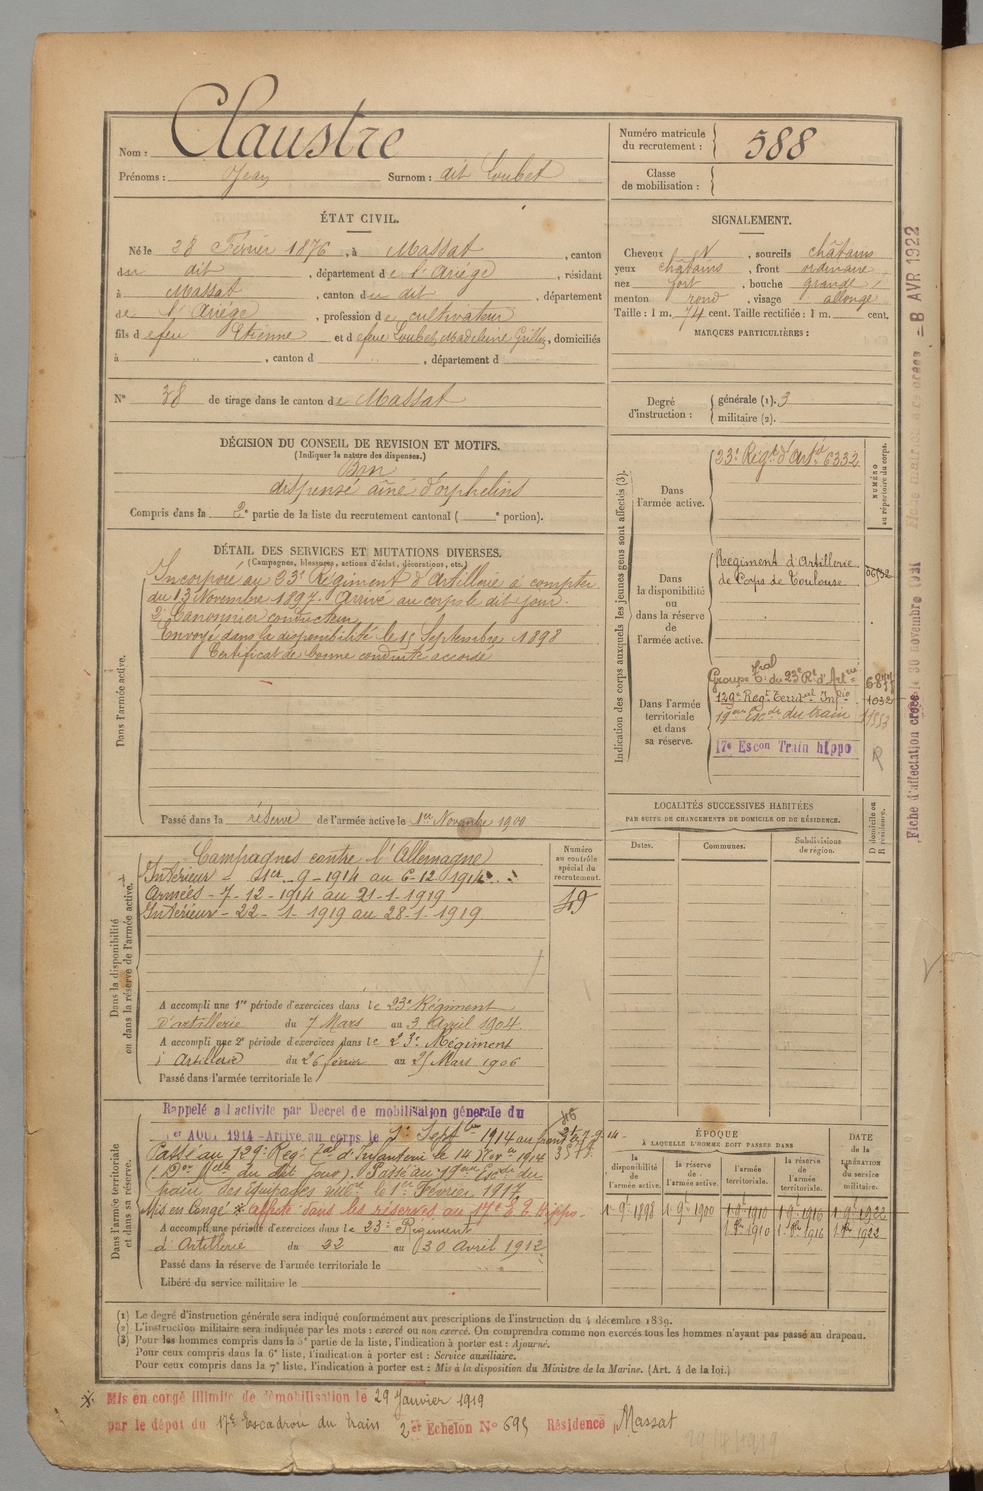 Nom : Claustre
Prénoms : Jean Surnom : dit Loubet
Numéro matricule du recrutement : 588
Classe de mobilisation :
ÉTAT CIVIL.
Né le 28 Février 1876, à Massat, canton
du dit, département de l'Ariège, résidant
à Massat, canton du dit, département
de l'Ariège, profession de cultivateur
fils de feu Etienne et de feue Loubet Madeleine, domiciliés
à " , canton d " , département d
N° 38 de tirage dans le canton de Massat
SIGNALEMENT.
Cheveux N, sourcils châtains
yeux châtains, front ordinaire
nez fort, bouche grande
menton rond, visage allongé
Taille : 1 m. 74 cent. Taille rectifiée : 1 m. cent.
MARQUES PARTICULIÈRES :
Degré d'instruction : générale (1). 3
militaire (2).
DÉCISION DU CONSEIL DE REVISION ET MOTIFS.
(Indiquer la nature des dispenses.)
Bon
dispensé aîné d'orphelins
Compris dans la 2e partie de la liste du recrutement cantonal ( e portion).
DÉTAIL DES SERVICES ET MUTATIONS DIVERSES.
(Campagnes, blessures, actions d'éclat, décorations, etc.)
Dans l'armée active.
Incorporé au 23e Régiment d'Artillerie à compter
du 13 Novembre 1897. Arrivé au corps le dit jour.
2e Canonnier conducteur
Envoyé dans la disponibilité le 15 Septembre 1898
Certificat de bonne conduite accordé
Passé dans la réserve de l'armée active le 1er Novembre 1900
Indication des corps auxquels les jeunes gens sont affectés (3).
NUMÉRO au répertoire du corps.
Dans l'armée active.
23e Régt d'Artie 6332
Dans la disponibilité ou dans la réserve de l'armée active.
Régiment d'Artillerie
de Corps de Toulouse
Dans l'armée territoriale et dans sa réserve.
Groupe Tal du 23e Rt d'Artie
129e Regt Territal Infie 1032
19ème Escon du train
17e Escon Train hippo
R
LOCALITÉS SUCCESSIVES HABITÉES
PAR SUITE DE CHANGEMENTS DE DOMICILE OU DE RÉSIDENCE.
Dates. Communes. Subdivisions de région. D domicile ou R résidence.
Dans la disponibilité ou dans la réserve de l'armée active.
Campagnes contre l'Allemagne
Intérieur - 1er - 9 - 1914 au 6-12-1914
Armées - 7-12-1914 au 21-1-1919
Intérieur - 22-1-1919 au 28-1-1919
Numéro au contrôle spécial du recrutement.
49
A accompli une 1re période d'exercices dans le 23e Régiment
d'artillerie du 7 Mars au 3 Avril 1904.
A accompli une 2e période d'exercices dans le 23e Régiment
d'Artillerie du 26 février au 25 Mars 1906
Passé dans l'armée territoriale le
Dans l'armée territoriale et dans sa réserve.
Rappelé à l'activité par Decret de mobilisation génerale du
1er AOUT 1914 - Arrivé au corps le 1er Septbre 1914
Passé au 129e Reg. Tal d'Infanterie le 14 Novre 1914
(Don Melle du dit jour). Passé au 19ème Escon du
train des Equipages milre le 1er Février 1917
Mis en Congé * affecté dans les réserves au 17e E. T. Hippo.
A accompli une période d'exercices dans le 23e Régiment
d'Artillerie du 22 au 30 Avril 1912
Passé dans la réserve de l'armée territoriale le
Libéré du service militaire le
ÉPOQUE
À LAQUELLE L'HOMME DOIT PASSER DANS
la disponibilité de l'armée active. la réserve de l'armée active. l'armée territoriale. la réserve de l'armée territoriale. DATE de la LIBÉRATION du service militaire.
1 9bre 1898 1 9bre 1900 1 9bre 1910 1 9bre 1916 1 9bre 1922
1 8bre 1910 1 8bre 1916 1 8bre 1922
(1) Le degré d'instruction générale sera indiqué conformément aux prescriptions de l'instruction du 4 décembre 1889.
(2) L'instruction militaire sera indiquée par les mots : exercé ou non exercé. On comprendra comme non exercés tous les hommes n'ayant pas passé au drapeau.
(3) Pour les hommes compris dans la 5e partie de la liste, l'indication à porter est : Ajourné.
Pour ceux compris dans la 6e liste, l'indication à porter est : Service auxiliaire.
Pour ceux compris dans la 7e liste, l'indication à porter est : Mis à la disposition du Ministre de la Marine. (Art. 4 de la loi.)
* Mis en congé illimité de démobilisation le 29 Janvier 1919
par le dépot du 17e Escadron du train 2e Echelon N° 695 Résidence Massat
29/4/1919
Fiche d'affectation créée le 30 novembre 1921
8 AVR 1922